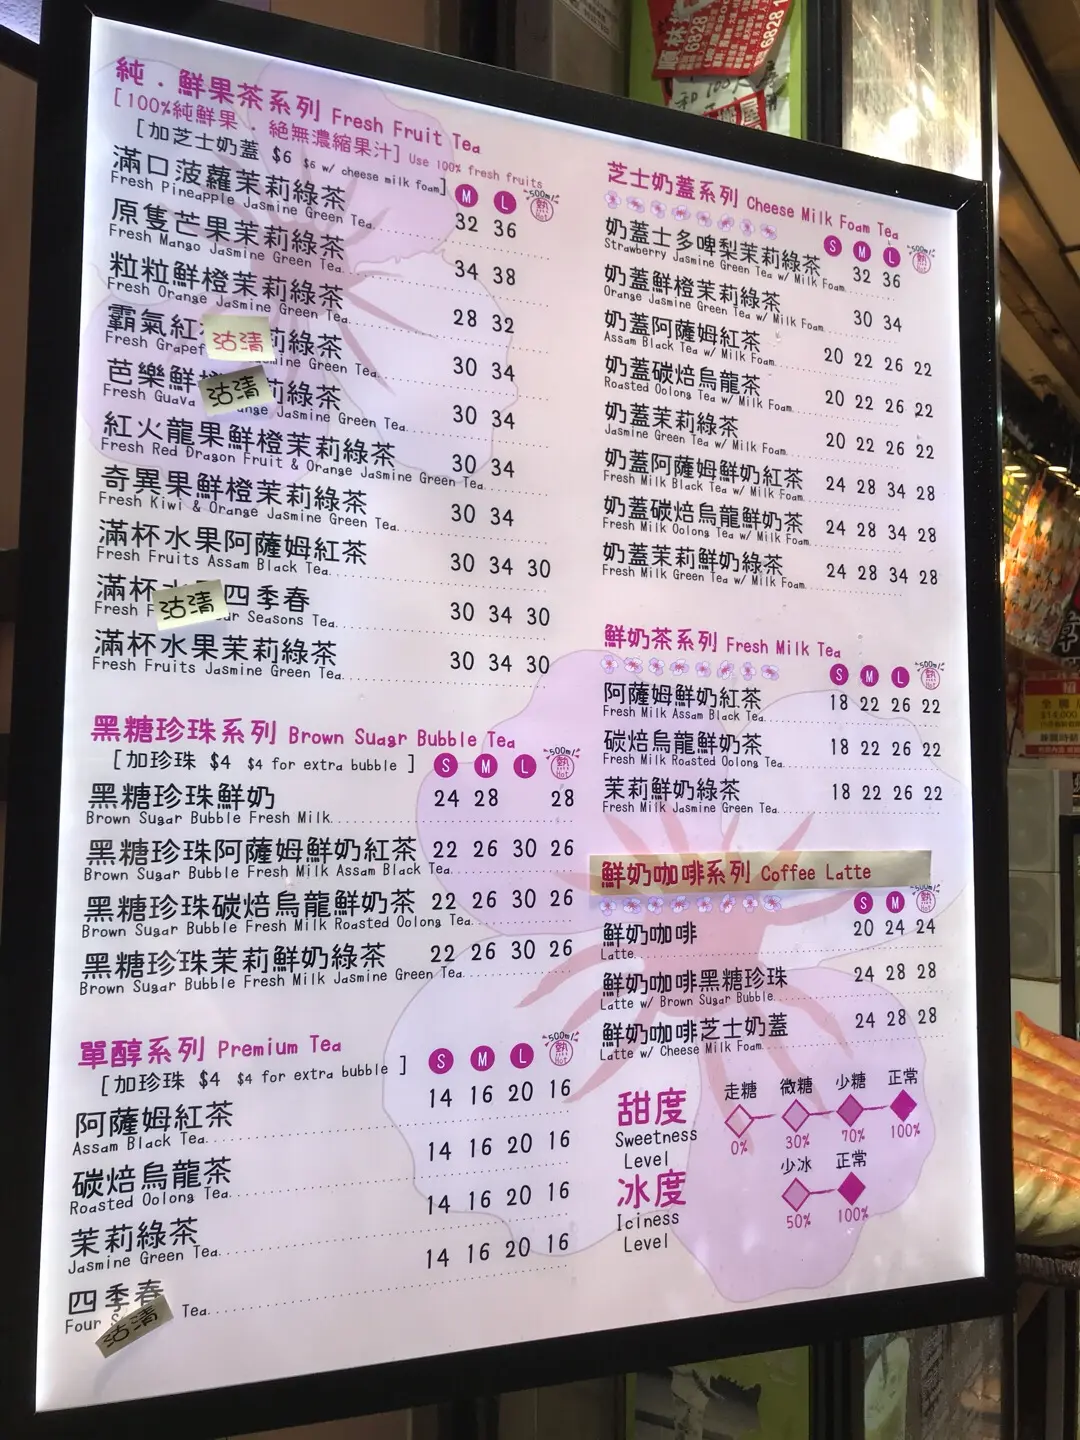 純．鮮果茶系列 Fresh Fruit Tea
[100%純鮮果．絕無濃縮果汁] Use 100% fresh fruits
[加芝士奶蓋 $6 $6 w/ cheese milk foam]
M L 500ml 熱
滿口菠蘿茉莉綠茶 32 36
Fresh Pineapple Jasmine Green Tea
原隻芒果茉莉綠茶 34 38
Fresh Mango Jasmine Green Tea
粒粒鮮橙茉莉綠茶 28 32
Fresh Orange Jasmine Green Tea
霸氣紅 沽清 莉綠茶 30 34
Fresh Grapef smine Green Tea
芭樂鮮 沽清 莉綠茶 30 34
Fresh Guava ange Jasmine Green Tea
紅火龍果鮮橙茉莉綠茶 30 34
Fresh Red Dragon Fruit & Orange Jasmine Green Tea
奇異果鮮橙茉莉綠茶 30 34
Fresh Kiwi & Orange Jasmine Green Tea
滿杯水果阿薩姆紅茶 30 34 30
Fresh Fruits Assam Black Tea
滿杯水果四季春 30 34 30
Fresh F 沽清 ur Seasons Tea
滿杯水果茉莉綠茶 30 34 30
Fresh Fruits Jasmine Green Tea
黑糖珍珠系列 Brown Suagr Bubble Tea
[加珍珠 $4 $4 for extra bubble ] S M L 500ml 熱 Hot
黑糖珍珠鮮奶 24 28 28
Brown Sugar Bubble Fresh Milk
黑糖珍珠阿薩姆鮮奶紅茶 22 26 30 26
Brown Sugar Bubble Fresh Milk Assam Black Tea
黑糖珍珠碳焙烏龍鮮奶茶 22 26 30 26
Brown Sugar Bubble Fresh Milk Roasted Oolong Tea
黑糖珍珠茉莉鮮奶綠茶 22 26 30 26
Brown Sugar Bubble Fresh Milk Jasmine Green Tea
單醇系列 Premium Tea
[加珍珠 $4 $4 for extra bubble ] S M L 500ml 熱 Hot
阿薩姆紅茶 14 16 20 16
Assam Black Tea
碳焙烏龍茶 14 16 20 16
Roasted Oolong Tea
茉莉綠茶 14 16 20 16
Jasmine Green Tea
四季春 14 16 20 16
Four S 沽清 Tea
芝士奶蓋系列 Cheese Milk Foam Tea
S M L 500ml 熱
奶蓋士多啤梨茉莉綠茶 32 36
Strawberry Jasmine Green Tea w/ Milk Foam
奶蓋鮮橙茉莉綠茶 30 34
Orange Jasmine Green Tea w/ Milk Foam
奶蓋阿薩姆紅茶 20 22 26 22
Assam Black Tea w/ Milk Foam
奶蓋碳焙烏龍茶 20 22 26 22
Roasted Oolong Tea w/ Milk Foam
奶蓋茉莉綠茶 20 22 26 22
Jasmine Green Tea w/ Milk Foam
奶蓋阿薩姆鮮奶紅茶 24 28 34 28
Fresh Milk Black Tea w/ Milk Foam
奶蓋碳焙烏龍鮮奶茶 24 28 34 28
Fresh Milk Oolong Tea w/ Milk Foam
奶蓋茉莉鮮奶綠茶 24 28 34 28
Fresh Milk Green Tea w/ Milk Foam
鮮奶茶系列 Fresh Milk Tea
S M L 500ml 熱 Hot
阿薩姆鮮奶紅茶 18 22 26 22
Fresh Milk Assam Black Tea
碳焙烏龍鮮奶茶 18 22 26 22
Fresh Milk Roasted Oolong Tea
茉莉鮮奶綠茶 18 22 26 22
Fresh Milk Jasmine Green Tea
鮮奶咖啡系列 Coffee Latte
S M 500ml 熱
鮮奶咖啡 20 24 24
Latte
鮮奶咖啡黑糖珍珠 24 28 28
Latte w/ Brown Sugar Bubble
鮮奶咖啡芝士奶蓋 24 28 28
Latte w/ Cheese Milk Foam
甜度 走糖 微糖 少糖 正常
Sweetness Level 0% 30% 70% 100%
冰度 少冰 正常
Iciness Level 50% 100%